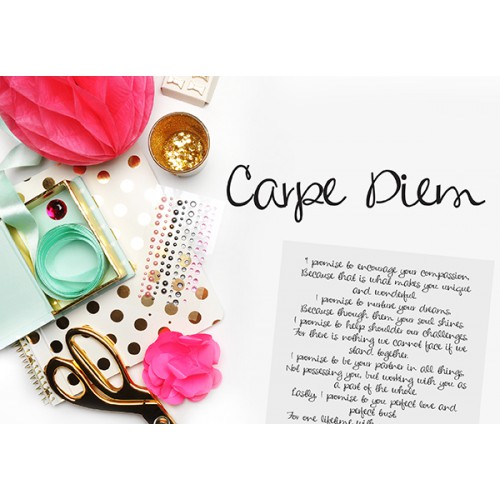 Carpe Diem
I promise to encourage your compassion
Because that is what makes you unique
and wonderful.
I promise to nurture your dreams.
Because through them your soul shines.
I promise to help shoulder our challenges.
For there is nothing we cannot face if we
stand together.
I promise to be your partner in all things.
Not possessing you, but working with you as
a part of the whole.
Lastly, I promise to you perfect love and
perfect trust.
For one lifetime with